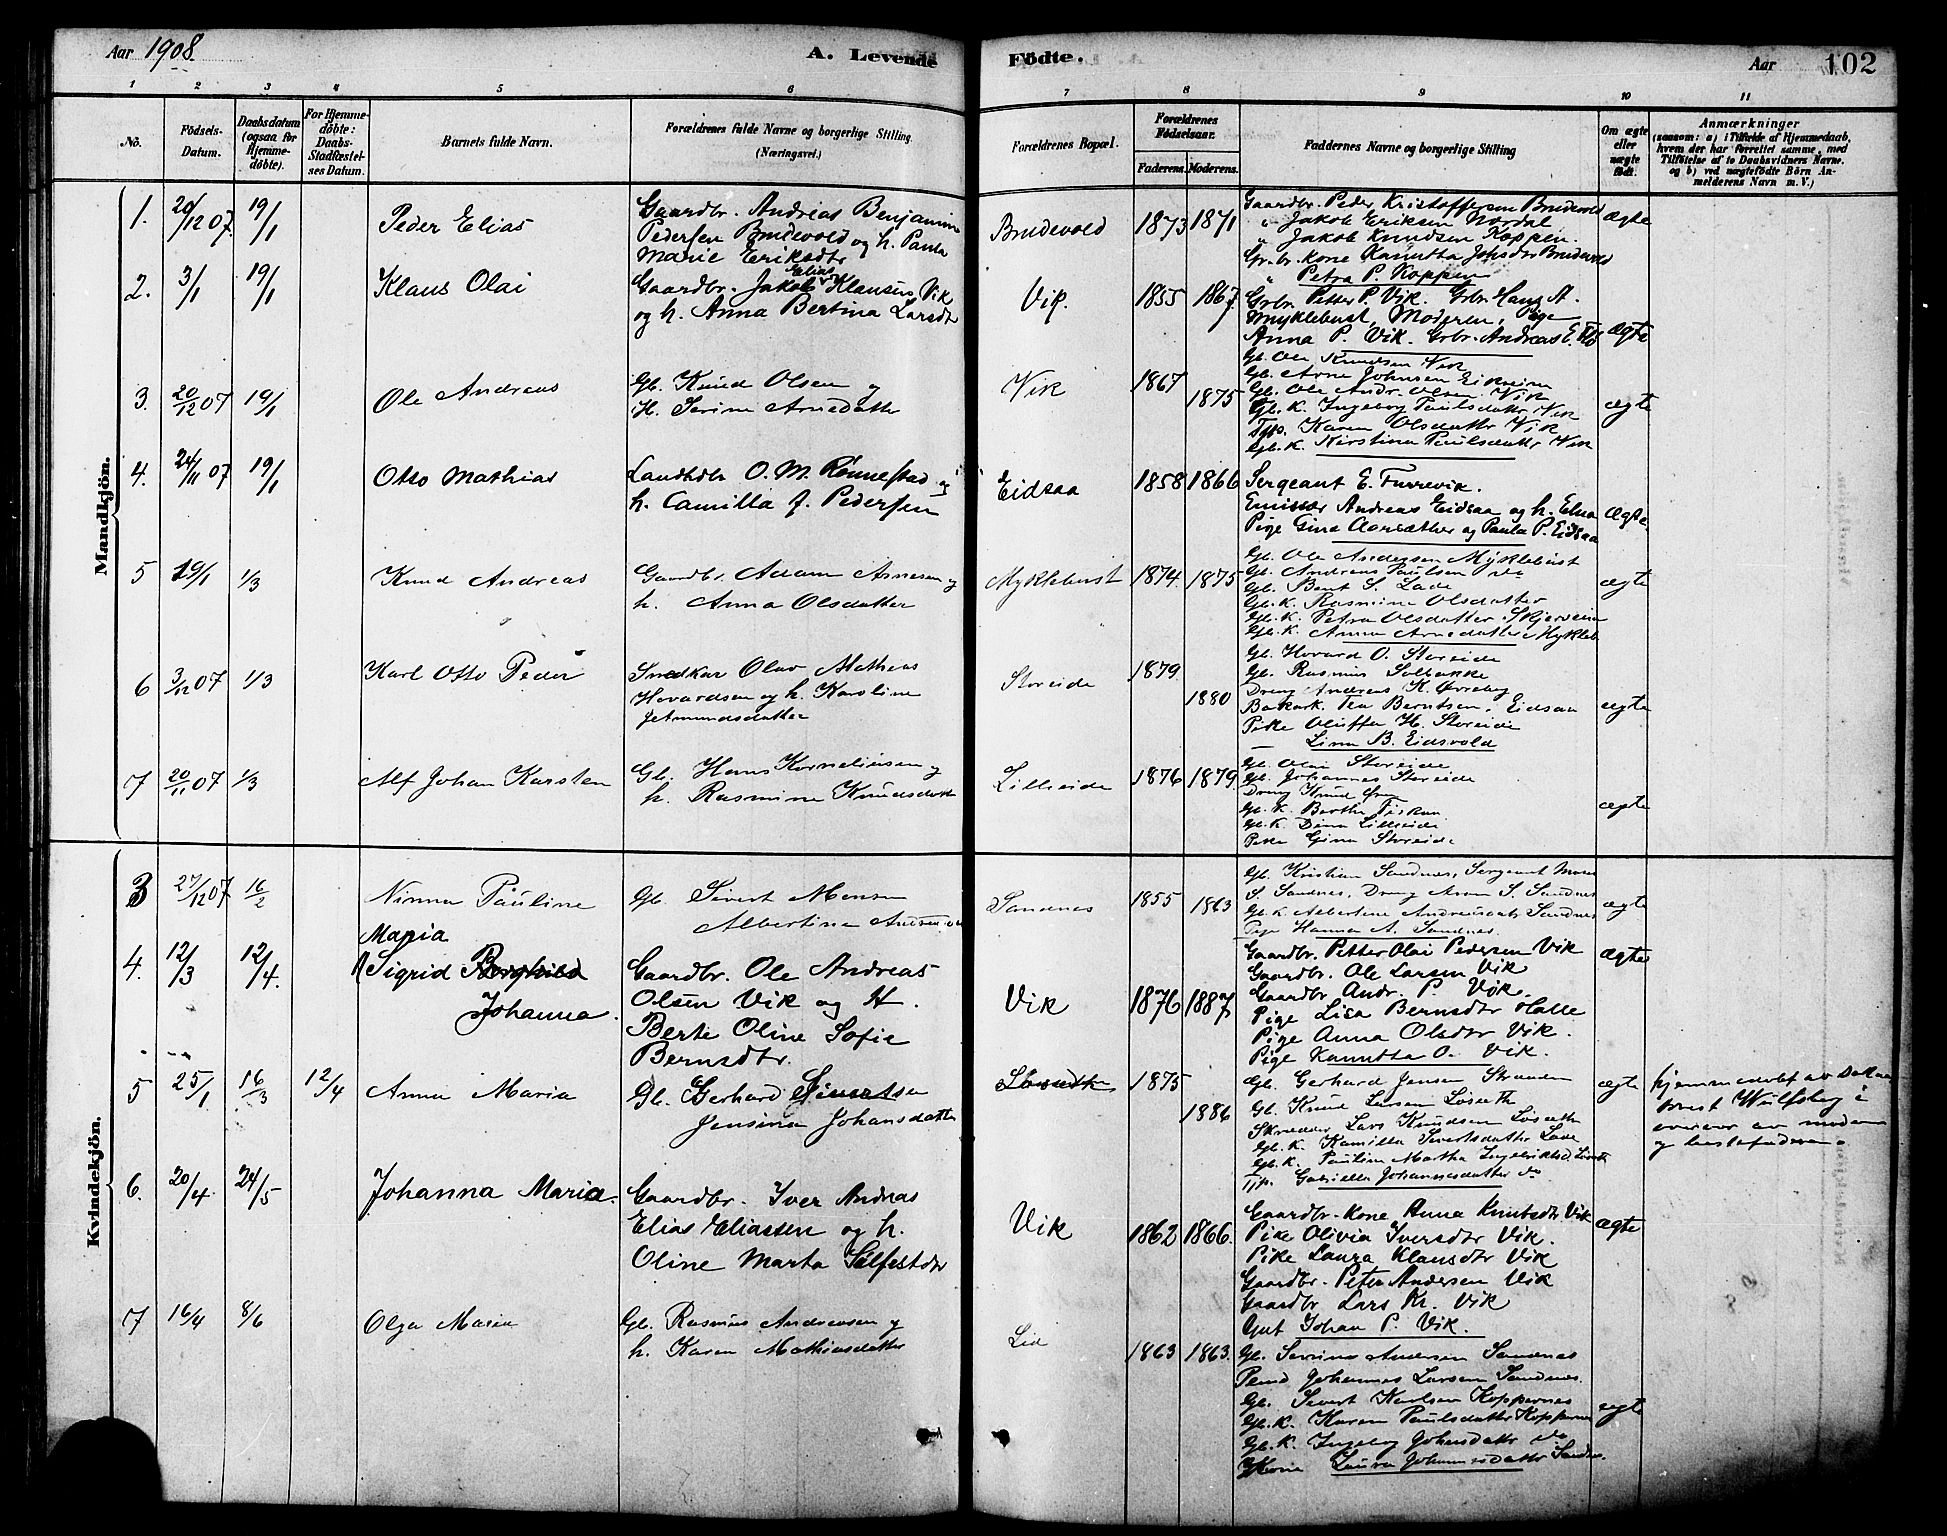 Aar 1908.
A. Levende Födte.
Aar 102
1 2 3 4 5 6 7 8 9 10 11
No.
Födsels-Datum.
Daabsdatum (ogsaa for Hjemmedöbte).
For Hjemmedöbte: Daabs-Stadfæstelses Datum.
Barnets fulde Navn.
Forældrenes fulde Navne og borgerlige Stilling. (Næringsvei.)
Forældrenes Bopæl.
Forældrenes Födselsaar.
Faderens. Moderens.
Faddernes Navne og borgerlige Stilling
Om ægte eller uægte födt.
Anmærkninger
(saasom: a) i Tilfælde af Hjemmedaab, hvem der har forrettet samme, med Tilföielse af to Daabsvidners Navne, og b) ved uægtefödte Börn Anmelderens Navn m. V.)
Mandkjön.
1. 20/12 07. 19/1 Peder Elias
Gaardbr. Andreas Benjamin
Pedersen Brudevold og h. Paula
Marie Eriksdtr
Brudevold 1873 1871
Gaardbr. Peder Kristoffersen Brudevold
" Jakob Eriksen Nordal
" Jakob Knudsen Koppen.
Gr.br. Kone Kanutta Johsdtr Brudevold
" Petra P. Koppen
ægte
2. 3/1 19/1 Klaus Olai
Gaardbr. Jakob Elias Klausen Vik
og h. Anna Bertina Larsdtr
Vik. 1855 1867.
Grbr. Petter P. Vik. Grbr. Hans A.
Myklebust, Moderen, Pige
Anna P. Vik. Grbr. Andreas E.
ægte
3. 20/12 07 19/1 Ole Andreas
Gb. Knud Olsen og
H. Serine Arnedatter
Vik 1867 1875
Gb. Ole Knudsen Vik
Gb. Arne Johnsen Eikrem
Gb. Ole Andr. Olsen Vik
Gb. K. Ingeborg Paulsdattr Vik
Tjp. Karen Olsdattr Vik
Gb. K. Kirstina Paulsdattr Vik
ægte
4. 24/11 07 19/1 Otto Mathias
Landhdlr O. M. Rønnestad og
h. Camilla J. Pedersen
Eidsaa 1858 1866
Sergeant E. Furrevik.
Emissær Andreas Eidsaa og h. Elna
Pige Gina Aarsæther og Paula P. Eidsaa
ægte
5 19/1 1/3 Knud Andreas
Gaardbr. Adam Arnesen og
h. Anna Olsdatter
Myklebust 1874. 1875
Gb. Ole Andersen Myklebust
Gb. Andreas Paulsen do
Gb. Bent S. Lade
Gb. K. Rasmine Olsdatter
Gb. K. Petra Olsdatter Skjerveim
Gb. K. Anna Arnedatter Mykleb.
ægte
6 3/12 07 1/3 Karl Otto Peder
Snedker Olav Mathias
Hovardsen og h. Karoline
Jetmundsdatter
Storeide 1879. 1880
Gb. Hovard O. Storeide
Gb. Rasmus Solbakke
Dreng Andreas K. Ørreberg
Bakark. Tea Berntsen, Eidsaa
Pike Oluffa H. Storeide
— Lina B. Eidsvold
ægte
7 20/11 07 1/3 Alf Johan Karsten
Gb. Hans Korneliusen og
h. Rasmine Knudsdatr
Lilleeide 1876 1879.
Gb. Olai Storeide
Gb. Johannes Storeide
Dreng Knud Øren
Gb. K. Berthe Fiskaa
Gb. K. Dina Lilleeide
Pike Gina Storeide
ægte
Kvindekjön.
3 27/12 07 16/2 Ninna Pauline
Maria
Gb. Sivert Monsen
Albertina Andreasdtr
Sandnes 1855 1863
Gb. Kristian Sandnes, Sergeant Mons
S. Sandnes, Dreng Aron S. Sandnes
Gb. K. Albertine Andreasdatr Sandnes
Pige Hanna A. Sandnes.
ægte
4. 12/3 12/4. Sigrid Borghild
Johanna.
Gaardbr. Ole Andreas
Olsen Vik og H.
Berte Oline Sofie
Bernsdtr.
Vik 1876 1887
Gaardbr. Petter Olai Pedersen Vik
Gaardbr. Ole Larsen Vik
Gaardbr Andr. P. Vik.
Pige Lisa Bernsdtr Halle
Pige Anna Olsdtr Vik.
Pige Kanutta O. Vik.
ægte
5 25/1 16/3 12/4 Anna Maria
Gb. Gerhard Sivertsen
Jensina Johansdatter
Løseth 1875 1886
Gb. Gerhard Jensen Stranden
Gb. Knud Larsen Løseth
Skrædder Lars Knudsen Løseth
Gb. K. Kamilla Sivertsdatter Lade
Gb. K. Pauline Martha Ingebriktsd. Løseth
Tjp. Gabriella Johannesdatter do
ægte
hjemmedøbt av Sokneprest Wulfsberg i
overvær av moderen
og bestefaderen.
6. 20/4 24/5 Johanna Maria.
Gaardbr. Iver Andreas
Elias Eliassen og h.
Oline Marta Sylfestdtr
Vik 1862 1866.
Gaardbr. Kone Anna Knutsdtr Vik
Pike Olivia Iversdtr Vik.
Pike Laura Klausdtr Vik
Gaardbr. Peter Andersen Vik
Gaardbr Lars Kr. Vik
Gut Johan P. Vik.
ægte
7 16/4 8/6 Olga Maria
Gb. Rasmus Andreasen og
h. Karen Mathiasdatter
Lid 1863 1863.
Gb. Severine Andersen Sandnes
Pens. Johannes Larsen Sandnes.
Gb. Sivert Karlsen Koppernes
Gb. K. Karen Paulsdatter Koppernes
Gb. K. Ingeborg Johansdatr do
Kone Laura Johannesdatr Sandnes.
ægte